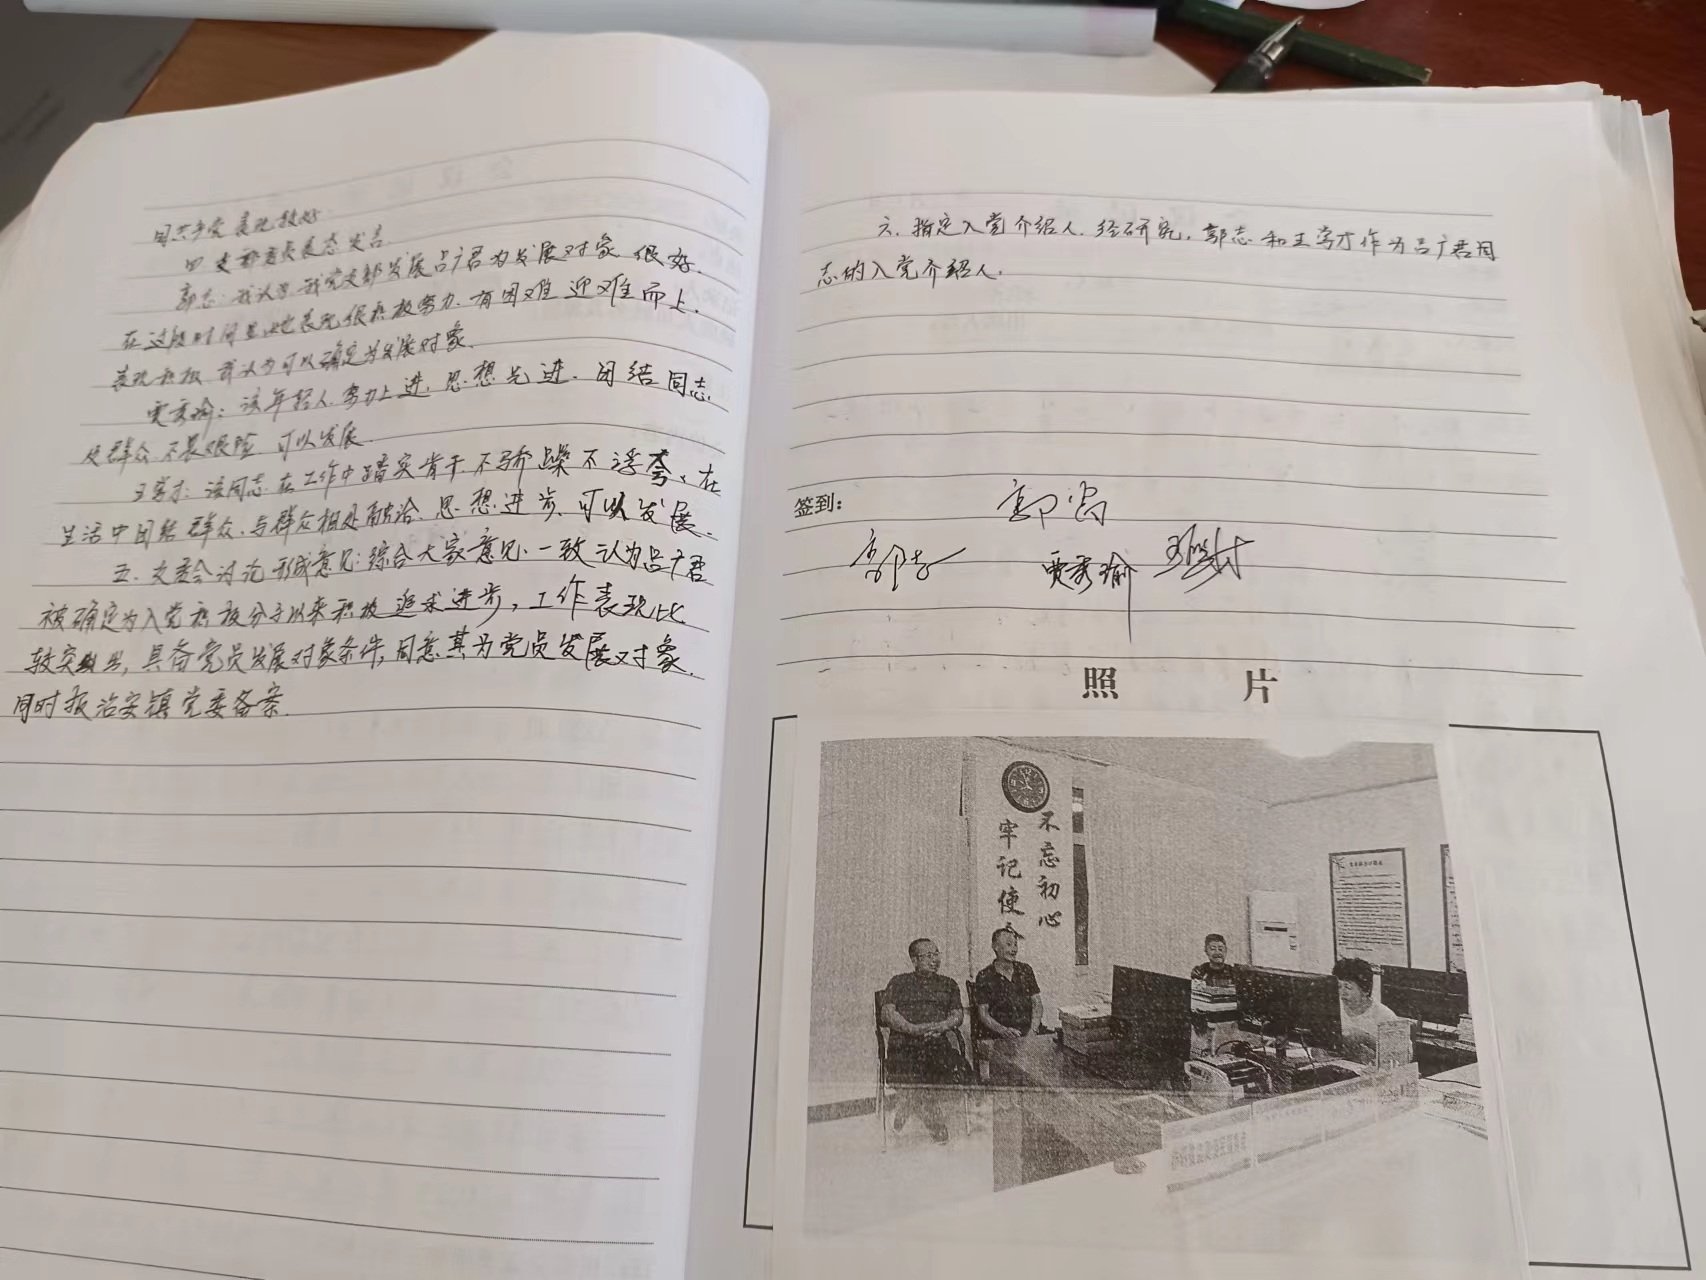 国共产党 表现较好
四 支部委员表态发言
郭志：我认为我党支部发展吕广君为发展对象很好.
在这段时间里他表现很积极努力.有困难迎难而上.
表现积极 我认为可以确定为发展对象.
贾秀瑜：该年轻人.努力上进.思想先进.团结同志.
群众 不畏艰险 可以发展.
王学才：该同志在工作中踏实肯干.不骄躁不浮夸、在
生活中团结群众、与群众相处融洽.思想进步.可以发展.
五.支委会讨论形成意见:综合大家意见.一致认为吕广君
被确定为入党积极分子以来积极追求进步,工作表现比
较突出,具备党员发展对象条件,同意其为党员发展对象.
同时报治安镇党委备案.
六.指定入党介绍人.经研究.郭志和王学才作为吕广君同
志的入党介绍人.
签到：
郭志 贾秀瑜 王学才
照 片
不忘初心
牢记使命